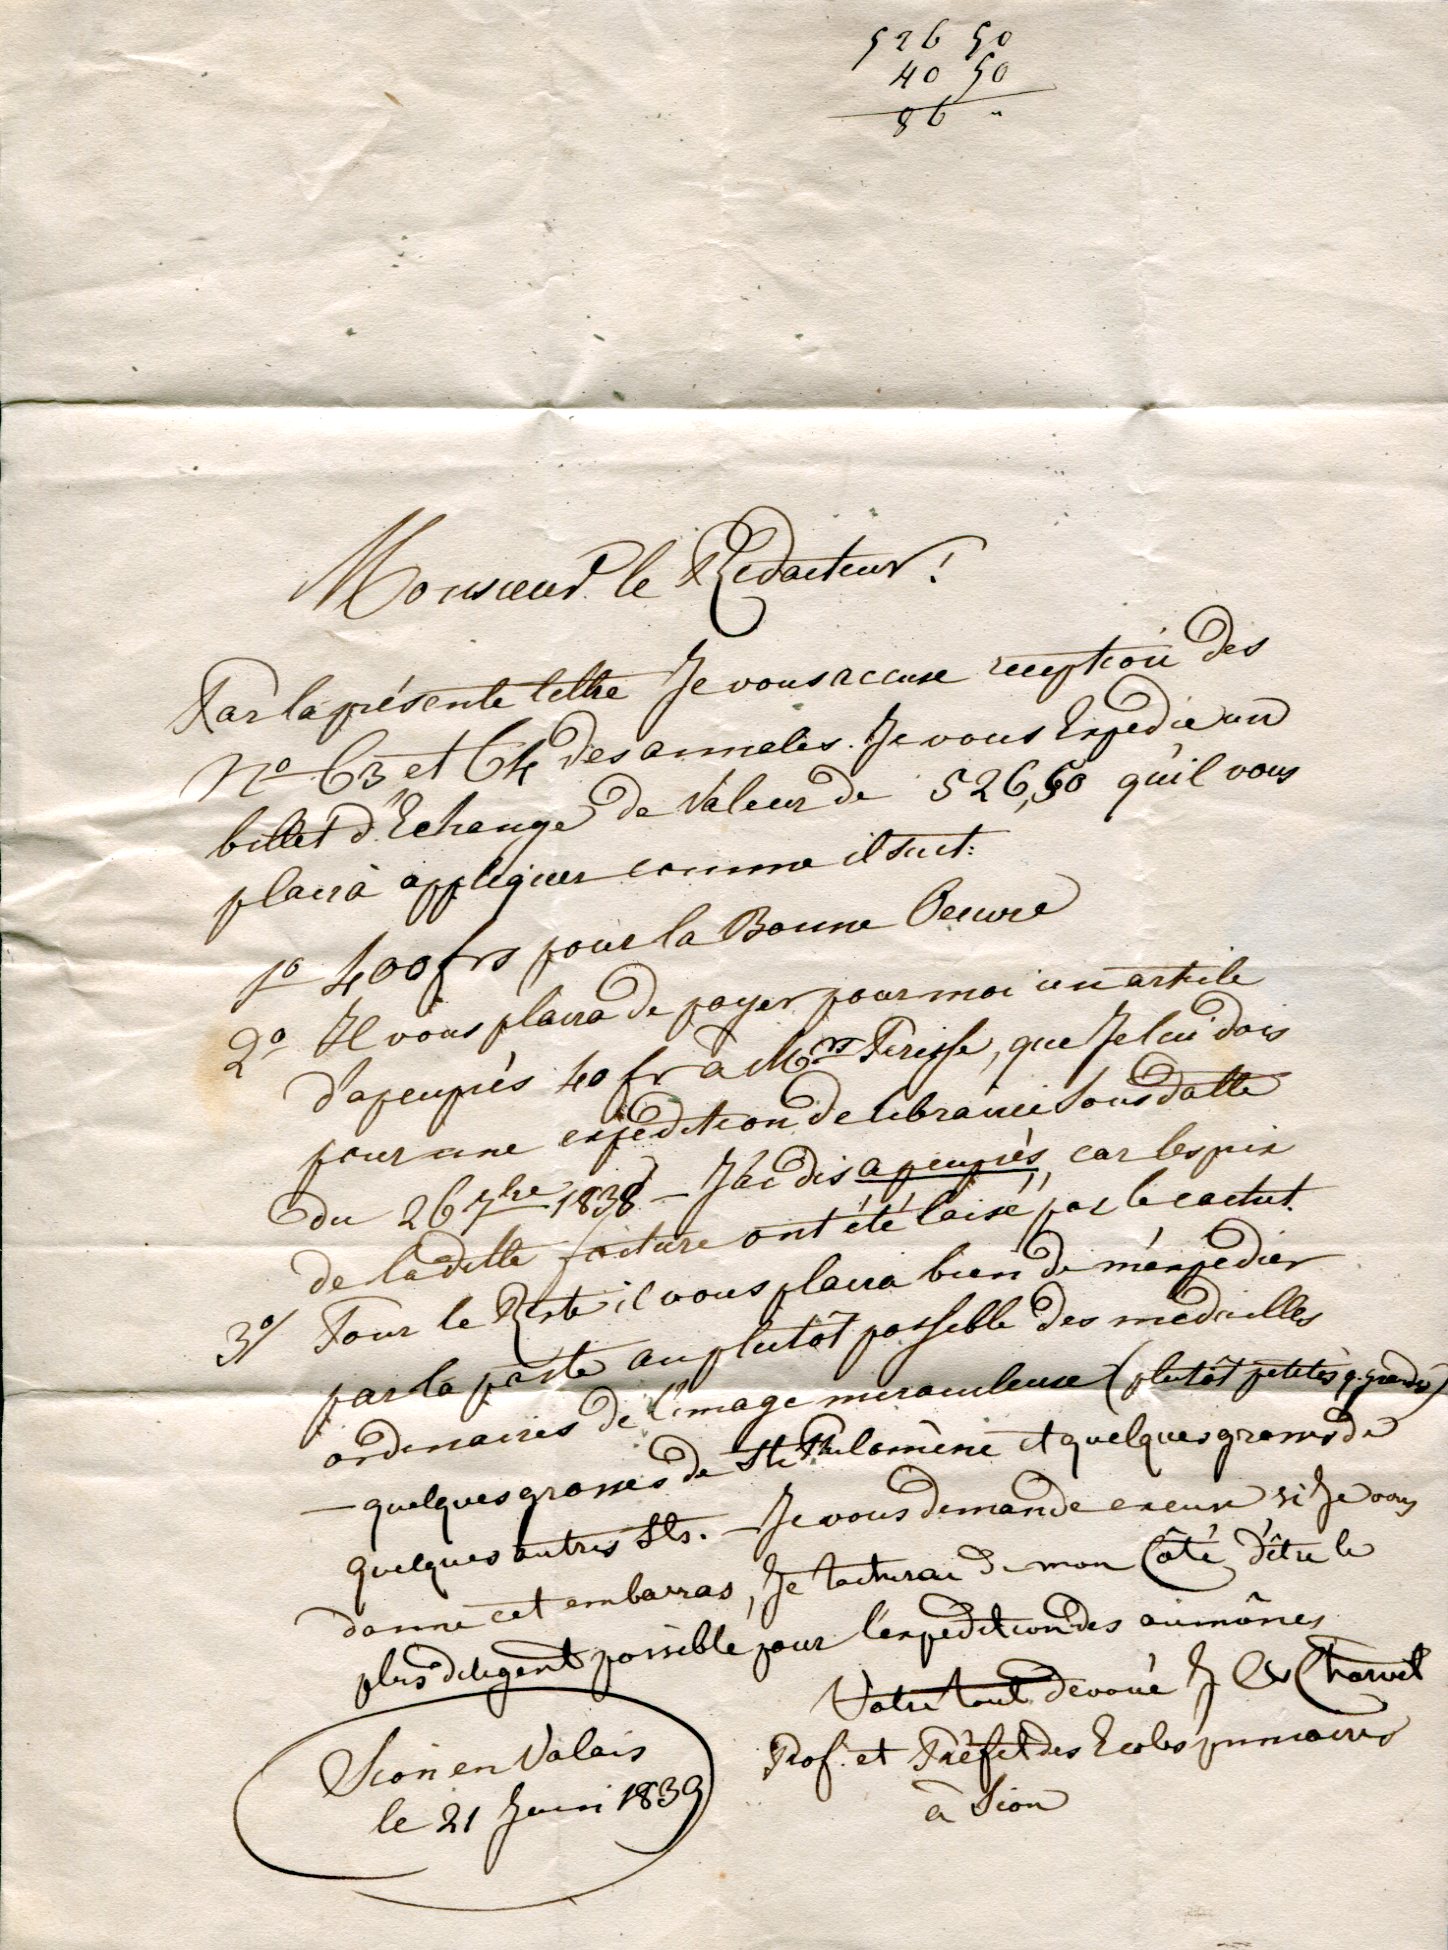 526 50
40 50
86 "
Monsieur le Redacteur!
Par la présente lettre Je vous accuse reception des
No 63 et 64 des annales. Je vous Expedie un
billet d'Echange de Valeur de 526,50 qu'il vous
plaira appliquer comme il suit:
1o 400 frs pour la Bonne Oeuvre
2o Il vous plaira de payer pour moi un article
d'apeuprès 40 fr à Mrs Perisse, que Je lui dois
pour une expédition de librairie Sous datte
du 26 7bre 1838 – J'ai dis apeuprès, car les prix
de la ditte facture ont été laisé par le
3o/ Pour le Reste il vous plaira bien de m'expédier
par la poste au plutôt possible des medailles
ordinaires de l'image miraculeuse (plutôt petites q. grandes)
– quelques grosses de Ste Philomène et quelques grosses de
quelques autres Sts. – Je vous demande excuse si Je vous
donne cet embarras, Je tacherai de mon Côté, d'être le
plus diligent possible pour l'expedition des aumônes
Votre tout dévoué J Charvet
Prof. et Préfet des Ecoles primaires
à Sion
Sion en Valais
le 21 Juin 1839